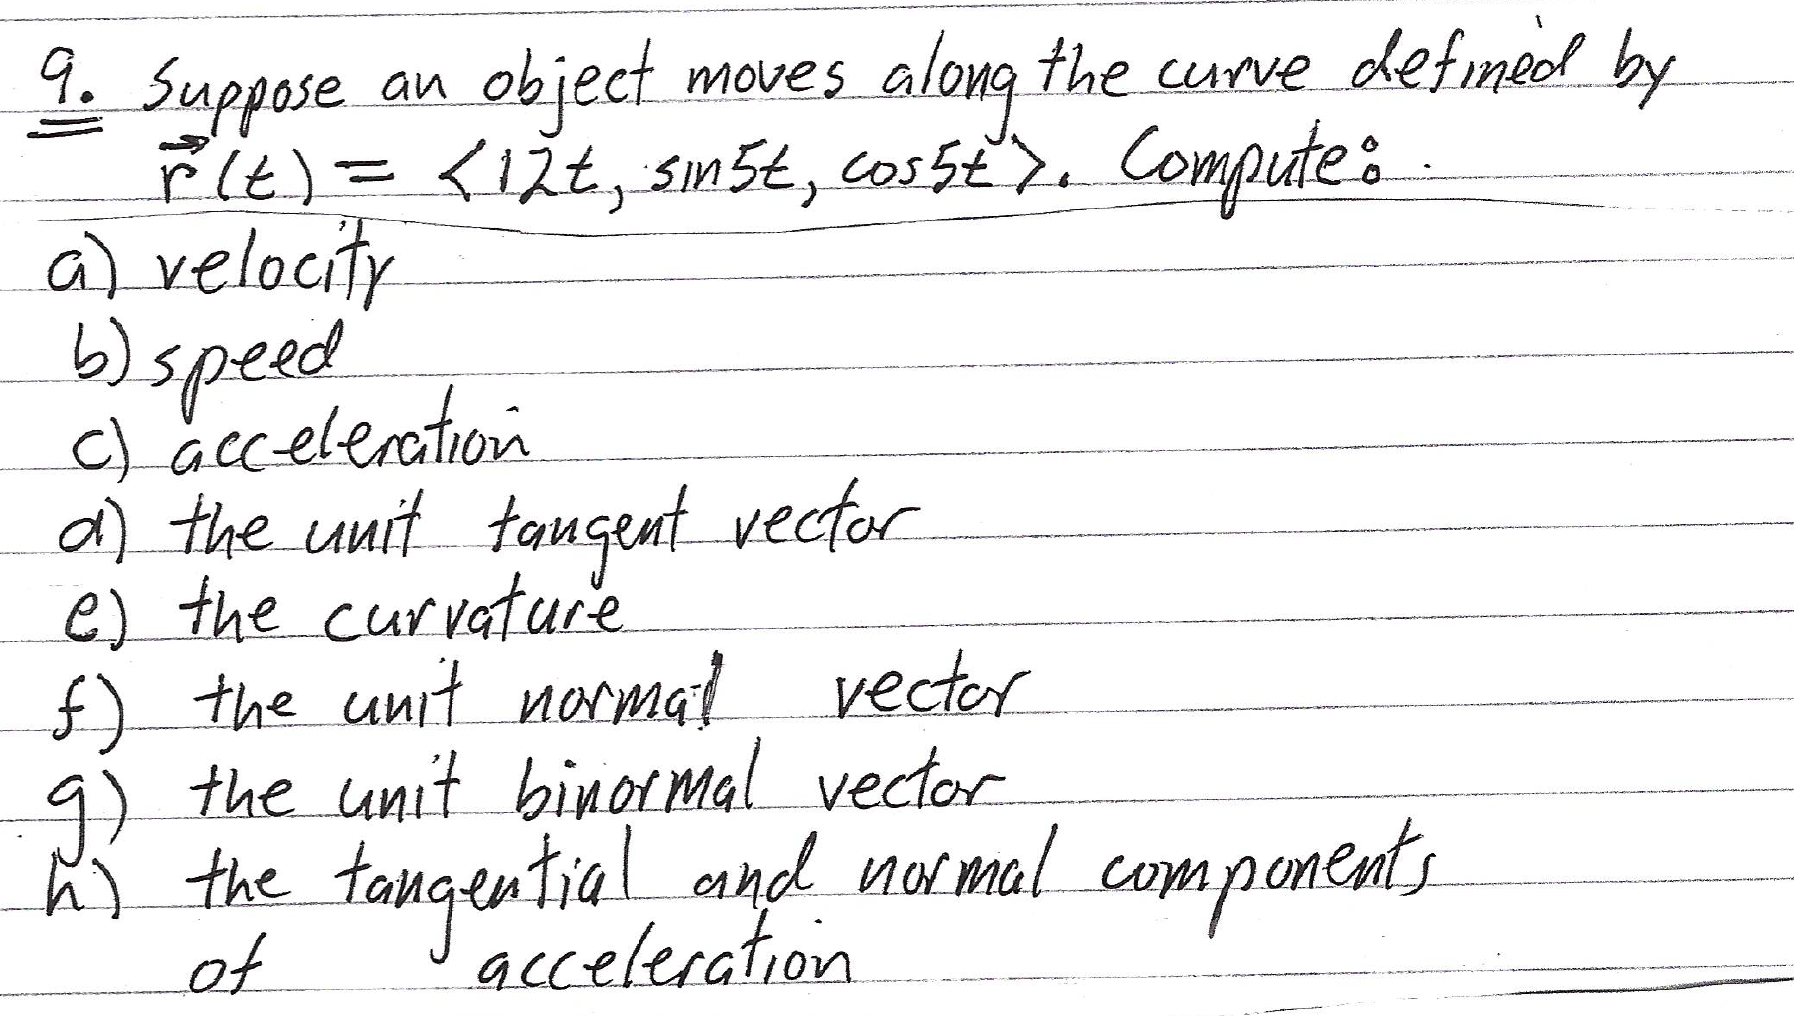 9. Suppose an object moves along the curve defined by
r⃗(t) = <12t, sin5t, cos5t>. Compute:
a) velocity
b) speed
c) acceleration
d) the unit tangent vector
e) the curvature
f) the unit normal vector
g) the unit binormal vector
h) the tangential and normal components
of acceleration